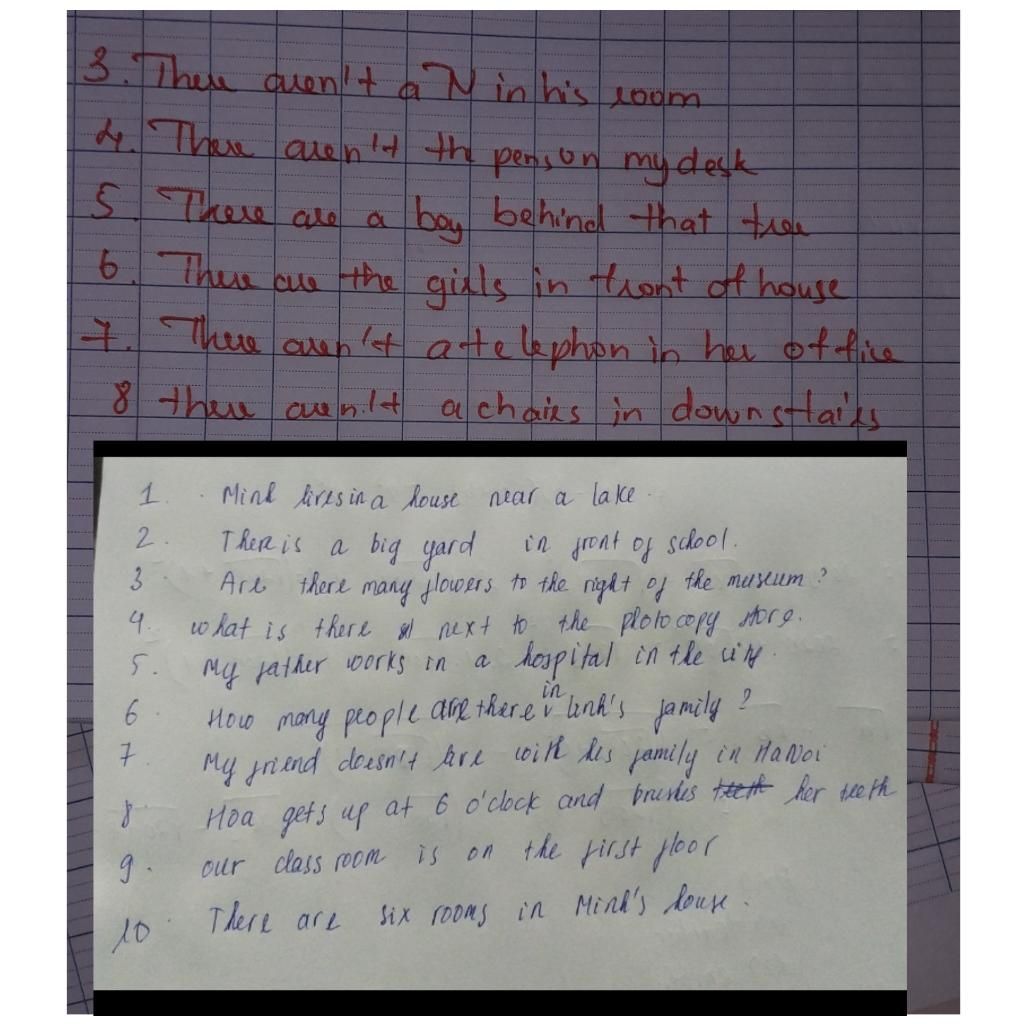 3. There aren't a TV in his room
4. There aren't the pens on my desk
5. There are a boy behind that tree
6. There are the girls in front of house
7. There aren't a telephon in her office
8 there aren't a chairs in downstairs
1. Minh lives in a house near a lake.
2. There is a big yard in front of school.
3 Are there many flowers to the right of the museum?
4. what is there next to the photocopy store.
5. My father works in a hospital in the city.
6 How many people are there in Linh's family?
7 My friend doesn't live with his family in HaNoi
8 Hoa gets up at 6 o'clock and brushes teeth her teeth
9. our class room is on the first floor
10 There are six rooms in Minh's house.